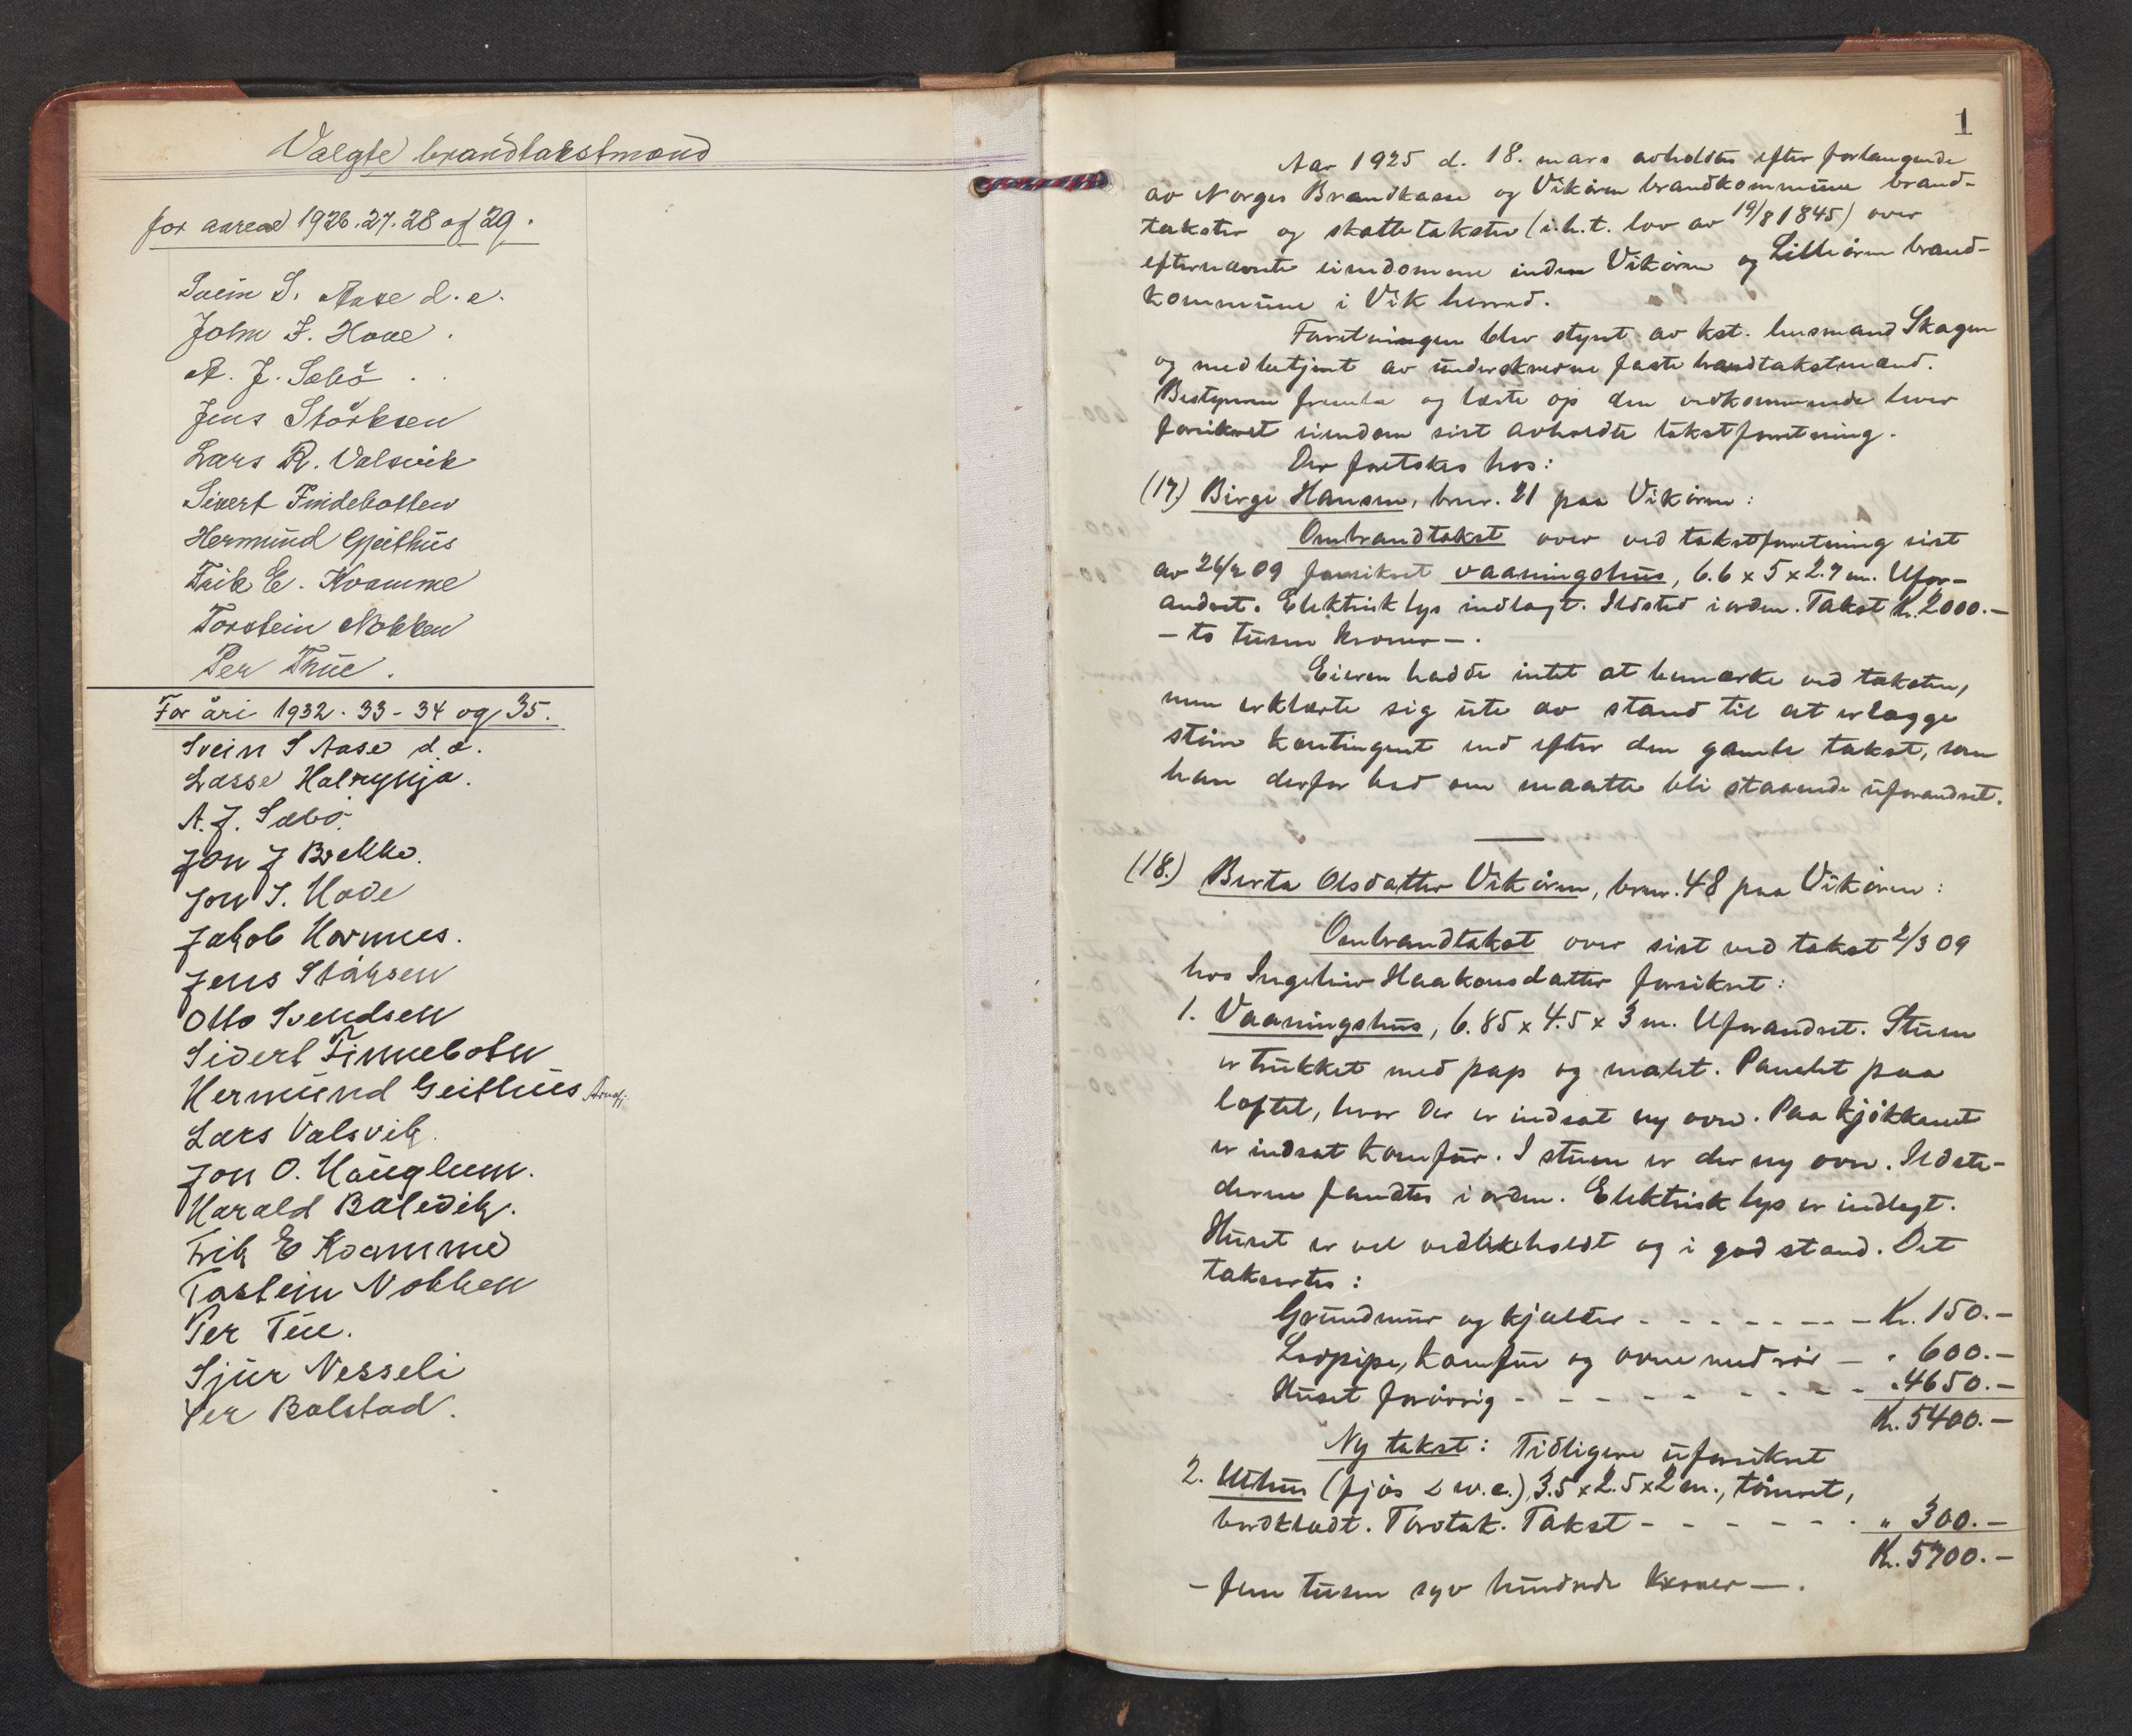 Valgte brandtakstmænd
for aarene 1926. 27. 28 og 29.
Svein S. Aase d. e.
John J. Hove.
A. J. Sæbö
Jens Störksen
Lars R. Valsvik
Sivert Findebotten
Hermund Gjeithus
Erik E. Kvamme
Torstein Nokken
Per Thue.
For åri 1932. 33 - 34 og 35.
Svein S Aase d. æ.
Lasse Halrynjo.
A. J. Sæbö.
Jon J Brekke.
Jon J. Hove
Jakob Hovmues.
Jens Stårksen
Otto Svendsen
Sivert Finnebotn
Hermund Geithus
Lars Valsvik.
Jon O. Hauglum.
Harald Balevik.
Erik E Kvamme
Torstein Nokken
Per Tue.
Sjur Nesseli
Per Bolstad.
1
Aar 1925 d. 18. mars avholdtes efter forlangende
av Norges Brandkasse og Vikören brandkommune brand-
takster og skattetakster (i.h.t. lov av 19/8 1845) over
efternævnte eiendomme inden Vikören og Lilleören brand-
kommune i Vik herred.
Forretningen blev styret av kst. lensmand Skagen
og medbetjent av underskrevne faste brandtakstmænd.
Bestyreren fremla og læste op den vedkommende hver
forsikret eiendom sist avholdte takstforretning.
Der foretokes hos:
(17.) Birge Hansen, brnr. 21 paa Vikören:
Ombrandtakst over ved takstforretning sist
av 26/2 09 forsikret vaaningshus, 6.6 x 5 x 2.7 m. Ufor-
andret. Elektrisk lys indlagt. Ildsted i orden. Takst Kr. 2000.-
- to tusen kroner -.
Eieren hadde intet at bemærke ved taksten,
men erklærte sig ute av stand til at erlægge
större kontingent end efter den gamle takst, som
han derfor bad om maatte bli staaende uforandret.
(18.) Berta Olsdatter Vikören, brnr. 48 paa Vikören:
Ombrandtakst over sist ved takst 2/3 09
hos Ingebor Haakonsdatter forsikret:
1. Vaaningshus, 6.85 x 4.5 x 3 m. Uforandret. Stuen
er trukket med pap og malt. Panelet paa
loftet, hvor der er indsat ny ovn. Paa kjökkenet
er indsat komfur. I stuen er der ny ovn. Ildste-
derne fandtes i orden. Elektrisk lys er indlagt.
Huset er vel vedlikeholdt og i god stand. Det
takseres:
Grundmur og kjælder - - - - - - - Kr. 150.-
Lovpipe, komfur og ovne med rör - " 600.-
Huset forövrig - - - - - - - - - " 4650.-
Kr. 5400.-
Ny takst: Tidligere uforsikret
2. Uthus (fjös & w.c.), 3.5 x 2.5 x 2 m., tömret,
bordklædt. Torvtak. Takst - - - - - - " 300.-
Kr. 5700.-
- fem tusen syv hundrede kroner -.